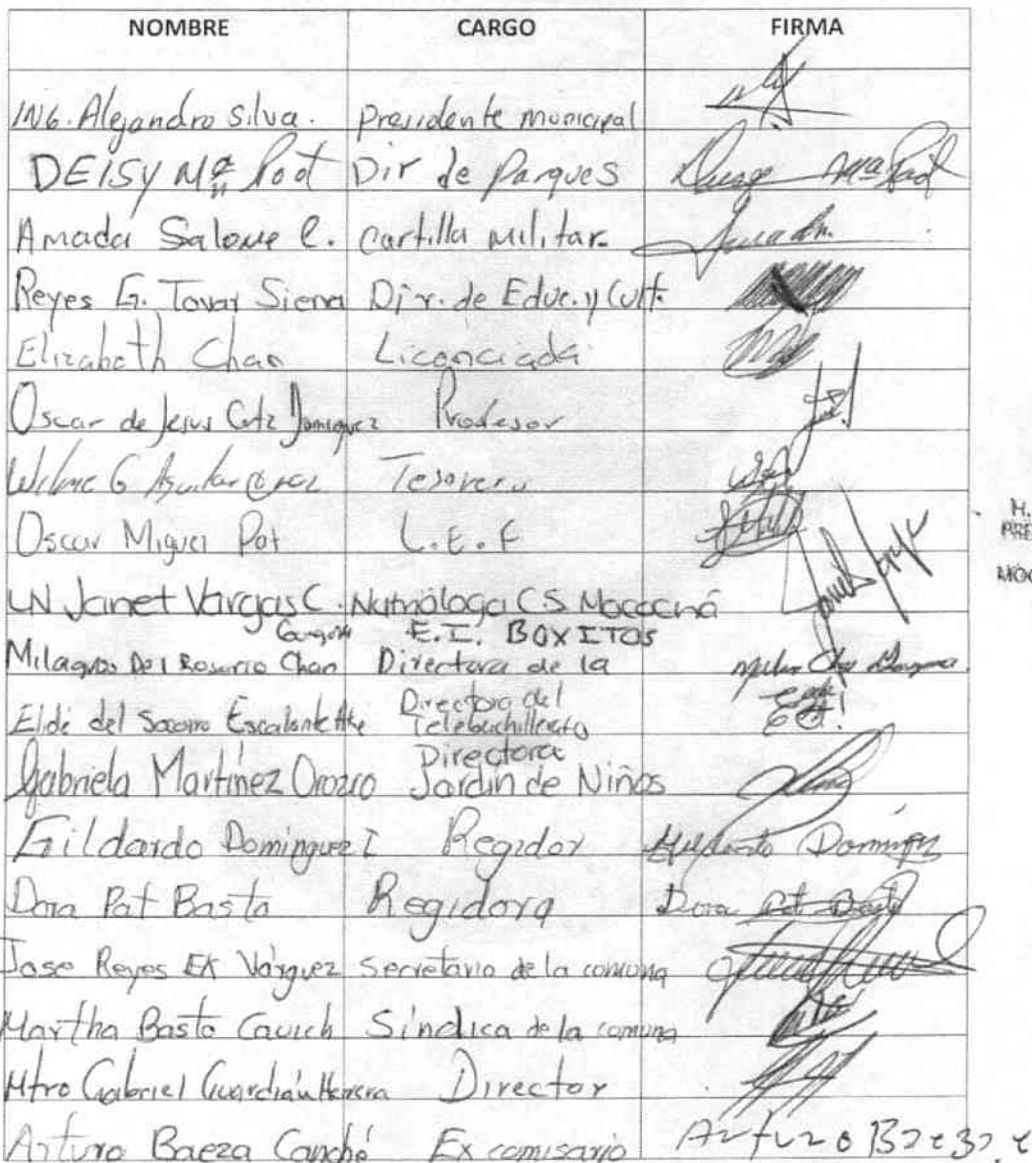 NOMBRE CARGO FIRMA
ING. Alejandro Silva. Presidente municipal
DEISY Mª Poot Dir de Parques
Amada Salome C. Cartilla militar.
Reyes G. Tovar Sierra Dir. de Educ. y Cult.
Elizabeth Chan Licenciada
Oscar de Jesus Cutz Dominguez Profesor
Wilme G Aguilar Tesorero
Oscar Miguel Pat L.E.F
LN Janet Vargas C. Nutrióloga C.S Mocochá
Gongora E.I. BOXITOS
Milagros Del Rosario Chan Directora de la
Elde del Socorro Escalante Directora del
Telebachillerato
Directora
Gabriela Martínez Orozco Jardín de Niños
Gildardo Dominguez I Regidor Domínguez
Dora Pat Basto Regidora Dora Pat Basto
Jose Reyes EK Vázquez Secretario de la comuna
Martha Basto Cauich Síndica de la comuna
Mtro Gabriel Guardián Herrera Director
Arturo Baeza Canché Ex comisario Arturo Baeza C
H.
PRE
MOC